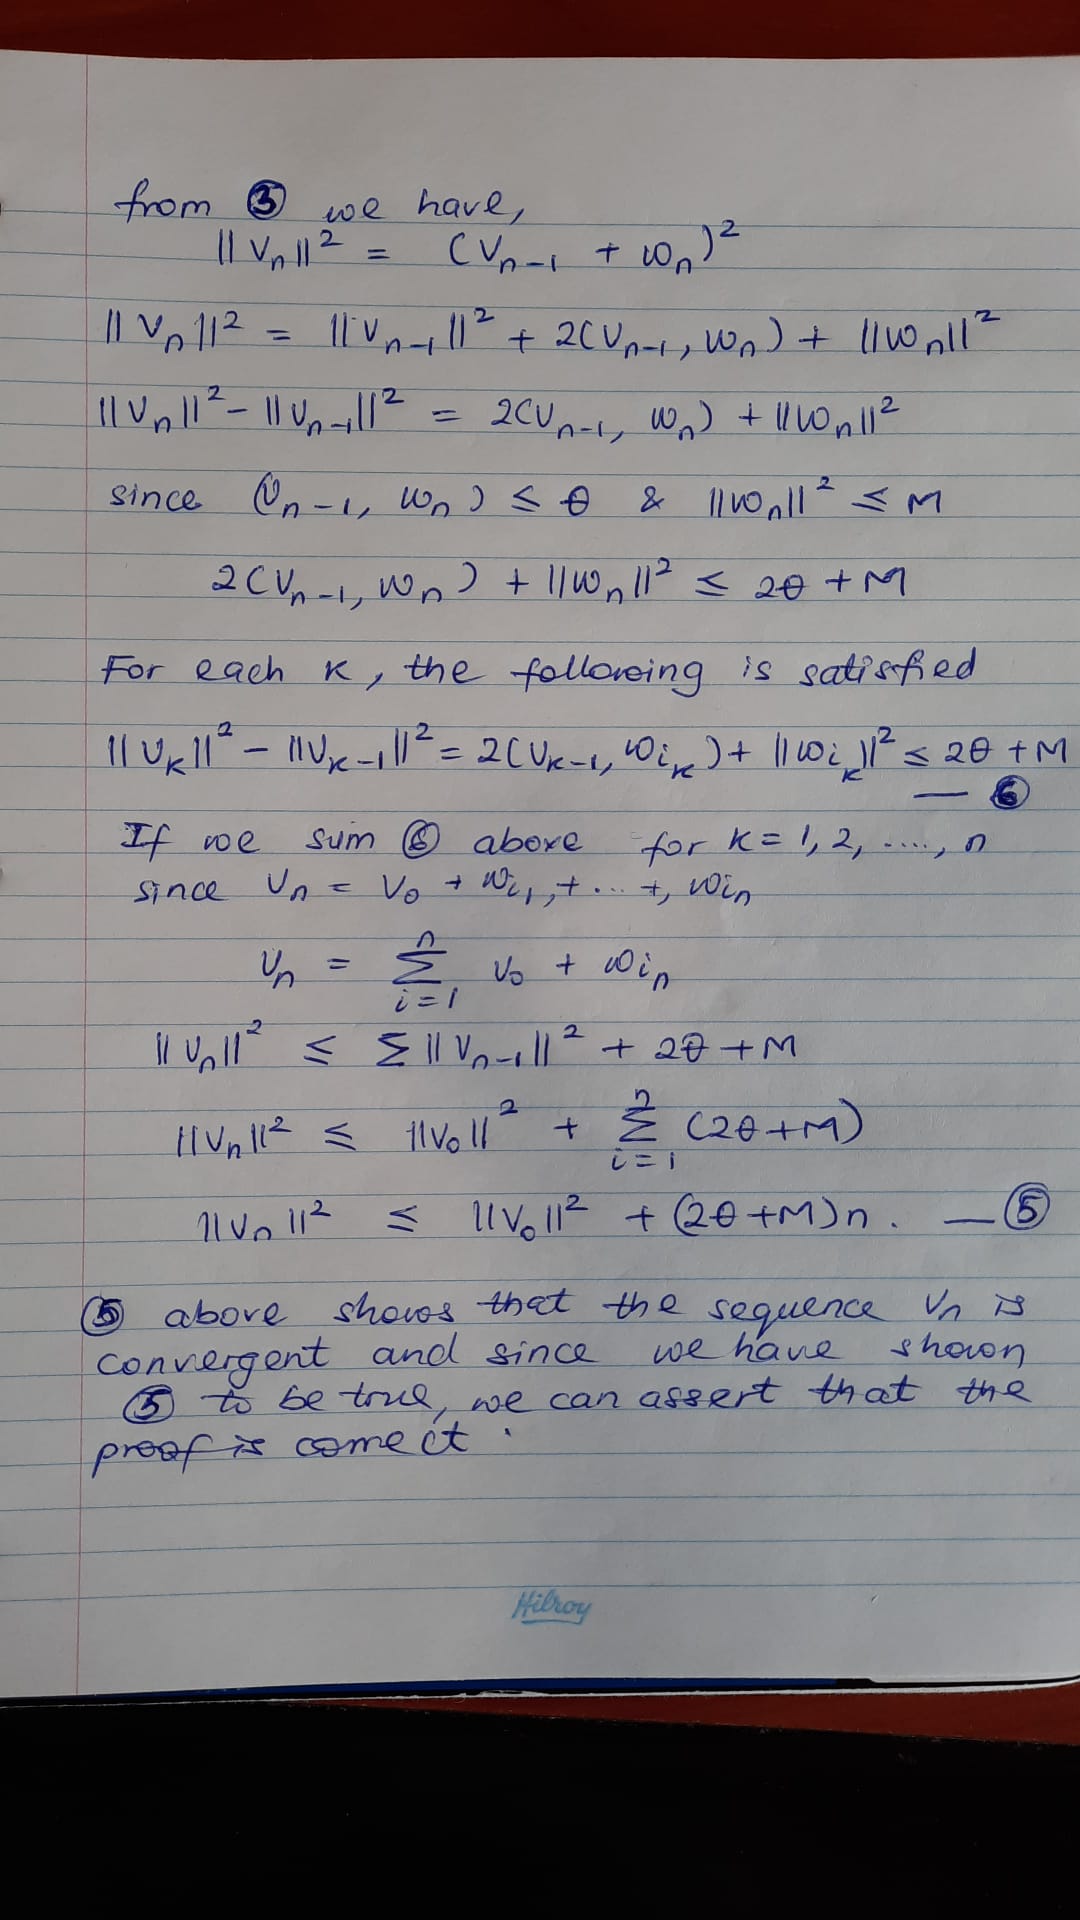 from ③ we have,
||Vn||² = (Vn-1 + wn)²
||Vn||² = ||Vn-1||² + 2(Vn-1, wn) + ||wn||²
||Vn||² - ||Vn-1||² = 2(Vn-1, wn) + ||wn||²
since (Vn-1, wn) ≤ θ & ||wn||² ≤ M
2(Vn-1, wn) + ||wn||² ≤ 2θ + M
For each k, the following is satisfied
||Vk||² - ||Vk-1||² = 2(Vk-1, wik) + ||wik||² ≤ 2θ + M
— ⑥
If we sum ⑥ above for k = 1, 2, ...., n
since Vn = V0 + wi1, + ... +, win
Vn = Σ(i=1 to n) V0 + win
||Vn||² ≤ Σ||Vn-1||² + 2θ + M
||Vn||² ≤ ||V0||² + Σ(i=1 to n) (2θ + M)
||Vn||² ≤ ||V0||² + (2θ + M)n. — ⑤
⑤ above shows that the sequence Vn is
convergent and since we have shown
⑤ to be true, we can assert that the
proof is correct.
Hilroy